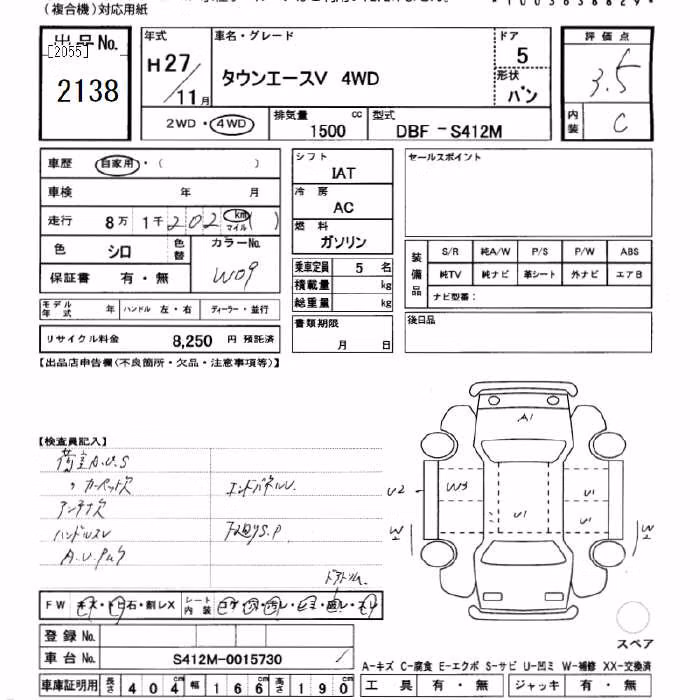 (複合機)対応用紙
出品No.
[2055]
2138
年式
H27/11月
車名・グレード
タウンエースV 4WD
ドア
5
形状
バン
評価点
3.5
内装
C
2WD・4WD
排気量
1500
cc
型式
DBF-S412M
車歴 自家用・( )
車検 年 月
走行 8万1千202 km マイル ( )
色 シロ
色替
カラーNo.
W09
保証書 有・無
モデル年式 年 ハンドル 左・右 ディーラー・並行
リサイクル料金 8,250 円 預託済
シフト
IAT
冷房
AC
燃料
ガソリン
乗車定員 5 名
積載量 kg
総重量 kg
書類期限
月 日
セールスポイント
装備品
S/R 純A/W P/S P/W ABS
純TV 純ナビ 革シート 外ナビ エアB
ナビ型番:
後日品
【出品店申告欄(不良箇所・欠品・注意事項等)】
【検査員記入】
荷室A.U.S
〃カーペットズ
エンドパネルU
アンテナズ
ハンドルスレ
下廻りS.P
A1
U2
W3
U1
U1
U1
W
W
FW キズ・トビ石・割レX
シート内装 コゲ・穴・汚レ・
スレ
登録No.
車台No. S412M-0015730
スペア
A-キズ C-腐食 E-エクボ S-サビ U-凹ミ W-補修 XX-交換済
車庫証明用 長さ 404cm 幅 166cm 高さ 190cm
工具 有・無 ジャッキ 有・無